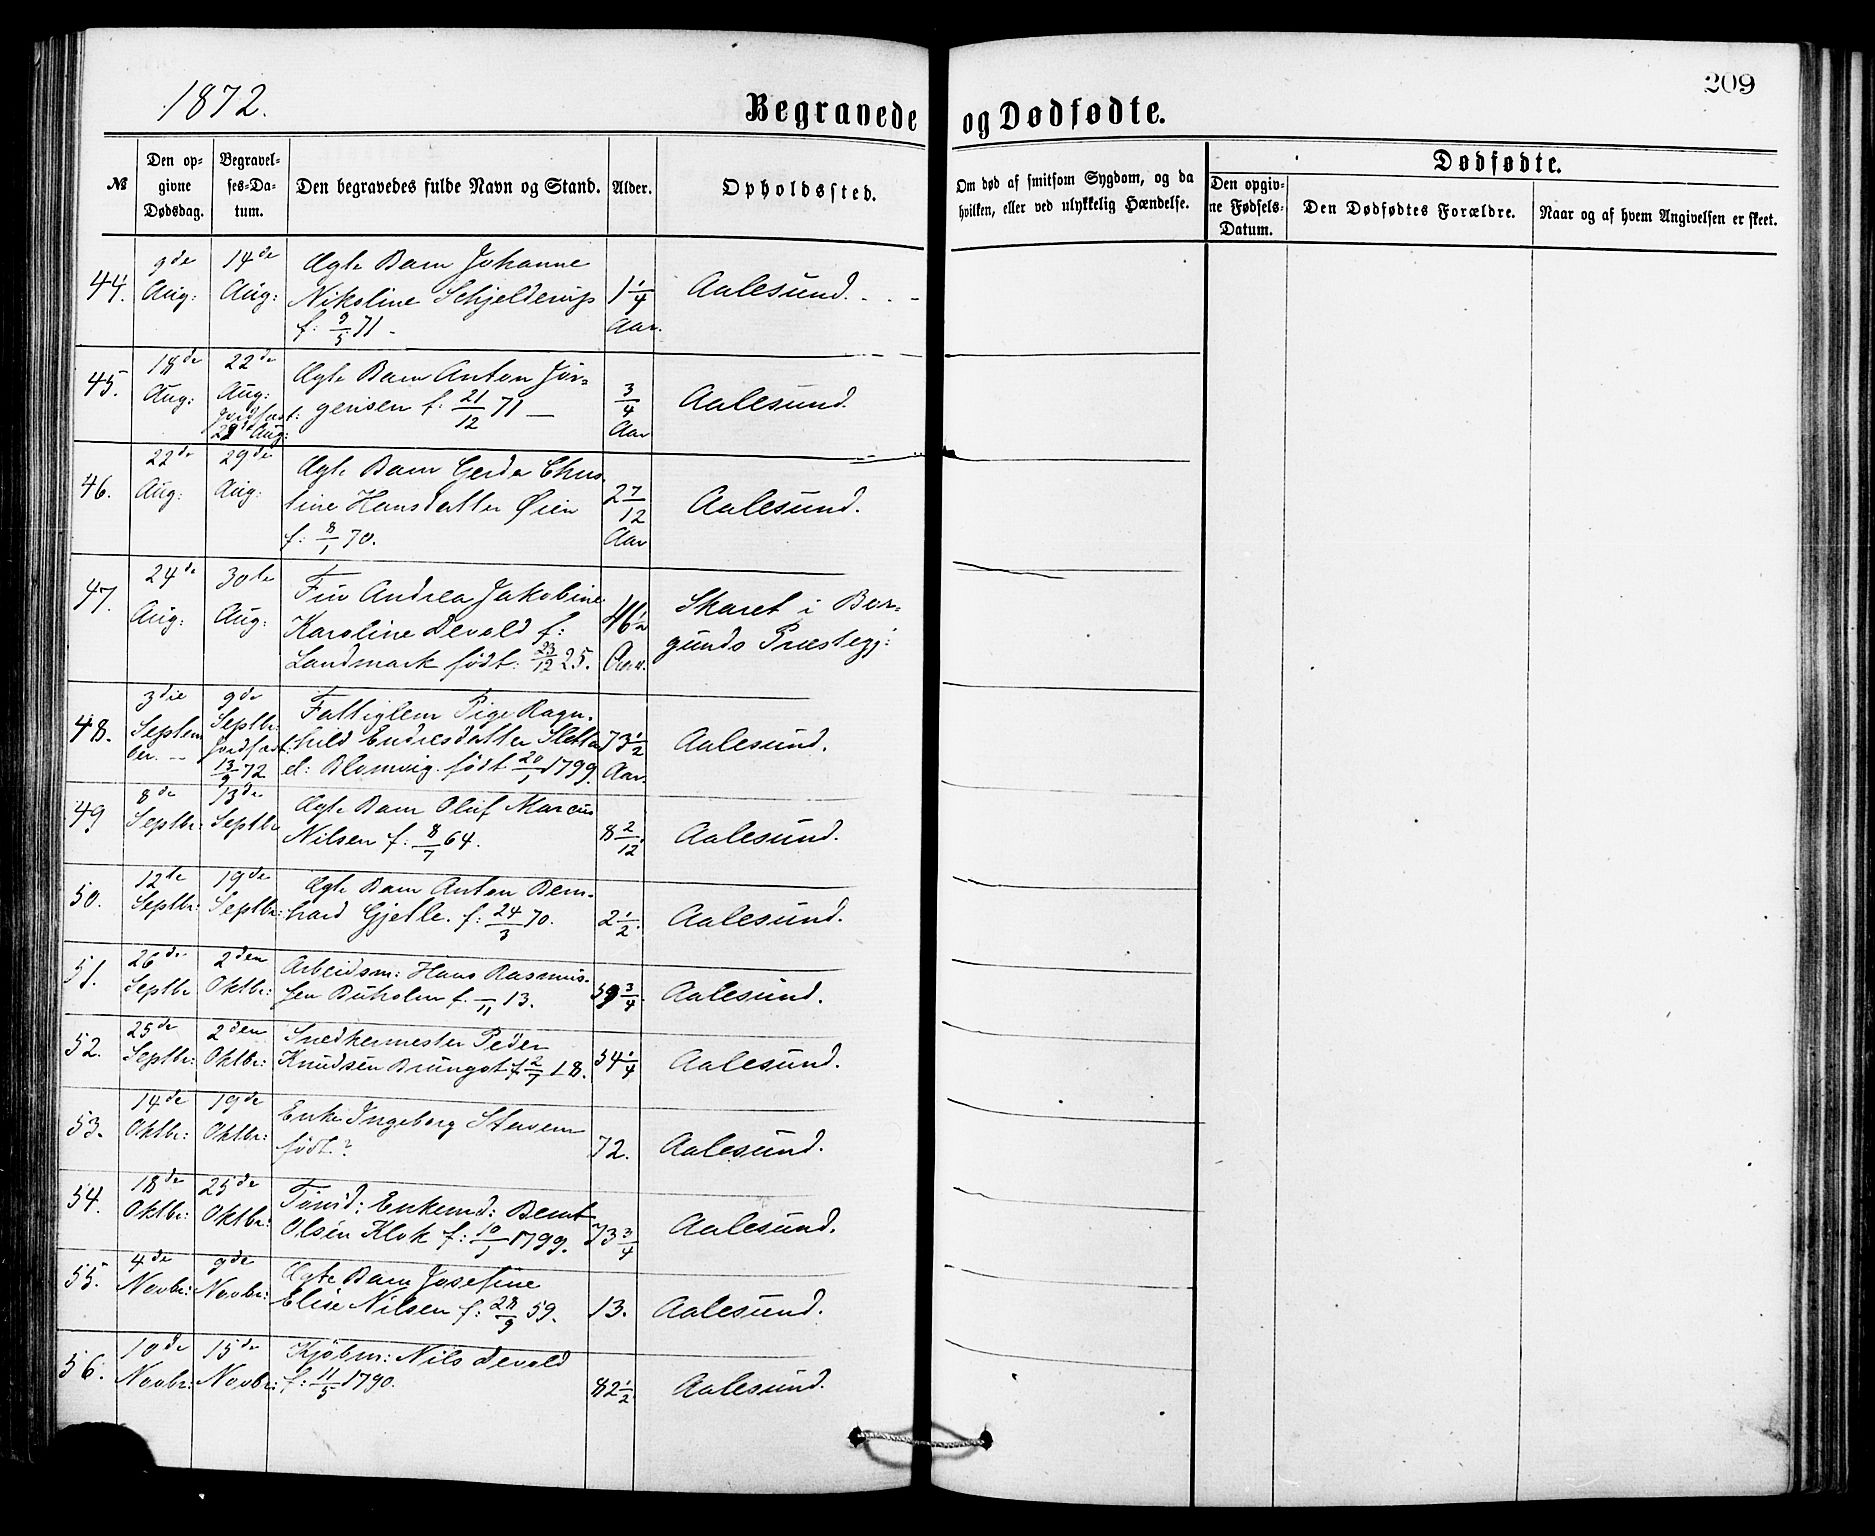 1872.
Begravede og Dødfødte.
209
№
Den op-
givne
Dødsdag.
Begravel-
ses-Da-
tum.
Den begravedes fulde Navn og Stand.
Alder.
Opholdssted.
Om død af smitsom Sygdom, og da
hvilken, eller ved ulykkelig Hændelse.
Dødfødte.
Den opgiv-
ne Fødsels-
Datum.
Den Dødfødtes Forældre.
Naar og af hvem Angivelsen er skeet.
44.
9de
Aug:
14de
Aug:
Ægte Barn Johanne
Nikoline Schjelderup
f: 9/5 71 -
1 1/4
Aar.
Aalesund.
45.
18de
Aug:
22de
Aug:
jordfæst:
Aug:
Ægte Barn Anton Jør-
gensen f: 21/12 71 —
3/4
Aar
Aalesund.
46.
22de
Aug:
29de
Aug:
Ægte Barn Gerda Chris
tine Hansdatter Øien
f: 8/1 70.
2 7/12
Aar
Aalesund.
47.
24de
Aug:
30te
Aug:
Fru Andrea Jakobine
Karoline Devold f:
Landmark født: 23/12 25.
46 1/2
Aar.
Skaret i Bor-
gunds Præstegj:
48.
3die
Septem
ber. —
9de
Septbr:
jordfæst:
13/9 72
Fattiglem Pige Ragn-
hild Endresdatter Slette
el: Blomvig. født 20/1 1799.
73 1/2
Aar.
Aalesund.
49
8de
Septbr:
13de
Septbr
Ægte Barn Oluf Marcus
Nilsen f: 8/7 64.
8 2/12
Aalesund.
50.
12te
Septbr:
19de
Septbr:
Ægte Barn Anton Bern-
hard Gjetle. f: 24/3 70.
2 1/2.
Aalesund.
51.
26de
Septbr
2den
Oktbr:
Arbeidsm: Hans Rasmus-
sen Buholm f. –/11 13.
59 3/4.
Aalesund.
52.
25de
Septbr:
2den
Oktbr:
Snedkermester Peder
Knudsen Brungot f. 2/7 18.
54 1/4
Aalesund.
53.
14de
Oktbr:
19de
Oktbr:
Enke Ingeborg Stavem
født?
72.
Aalesund.
54.
18de
Oktbr:
25de
Oktbr:
Enkemd: Bernt
Olsen Klok f: 10/1 1799.
73 3/4
Aalesund.
55.
4de
Novbr:
9de
Novbr:
Ægte Barn Josefine
Elise Nilsen f: 28/9 59.
13.
Aalesund.
56.
10de
Novbr:
15de
Novbr:
Kjøbm: Nils Devold
f: 11/5 1790.
82 1/2
Aalesund.